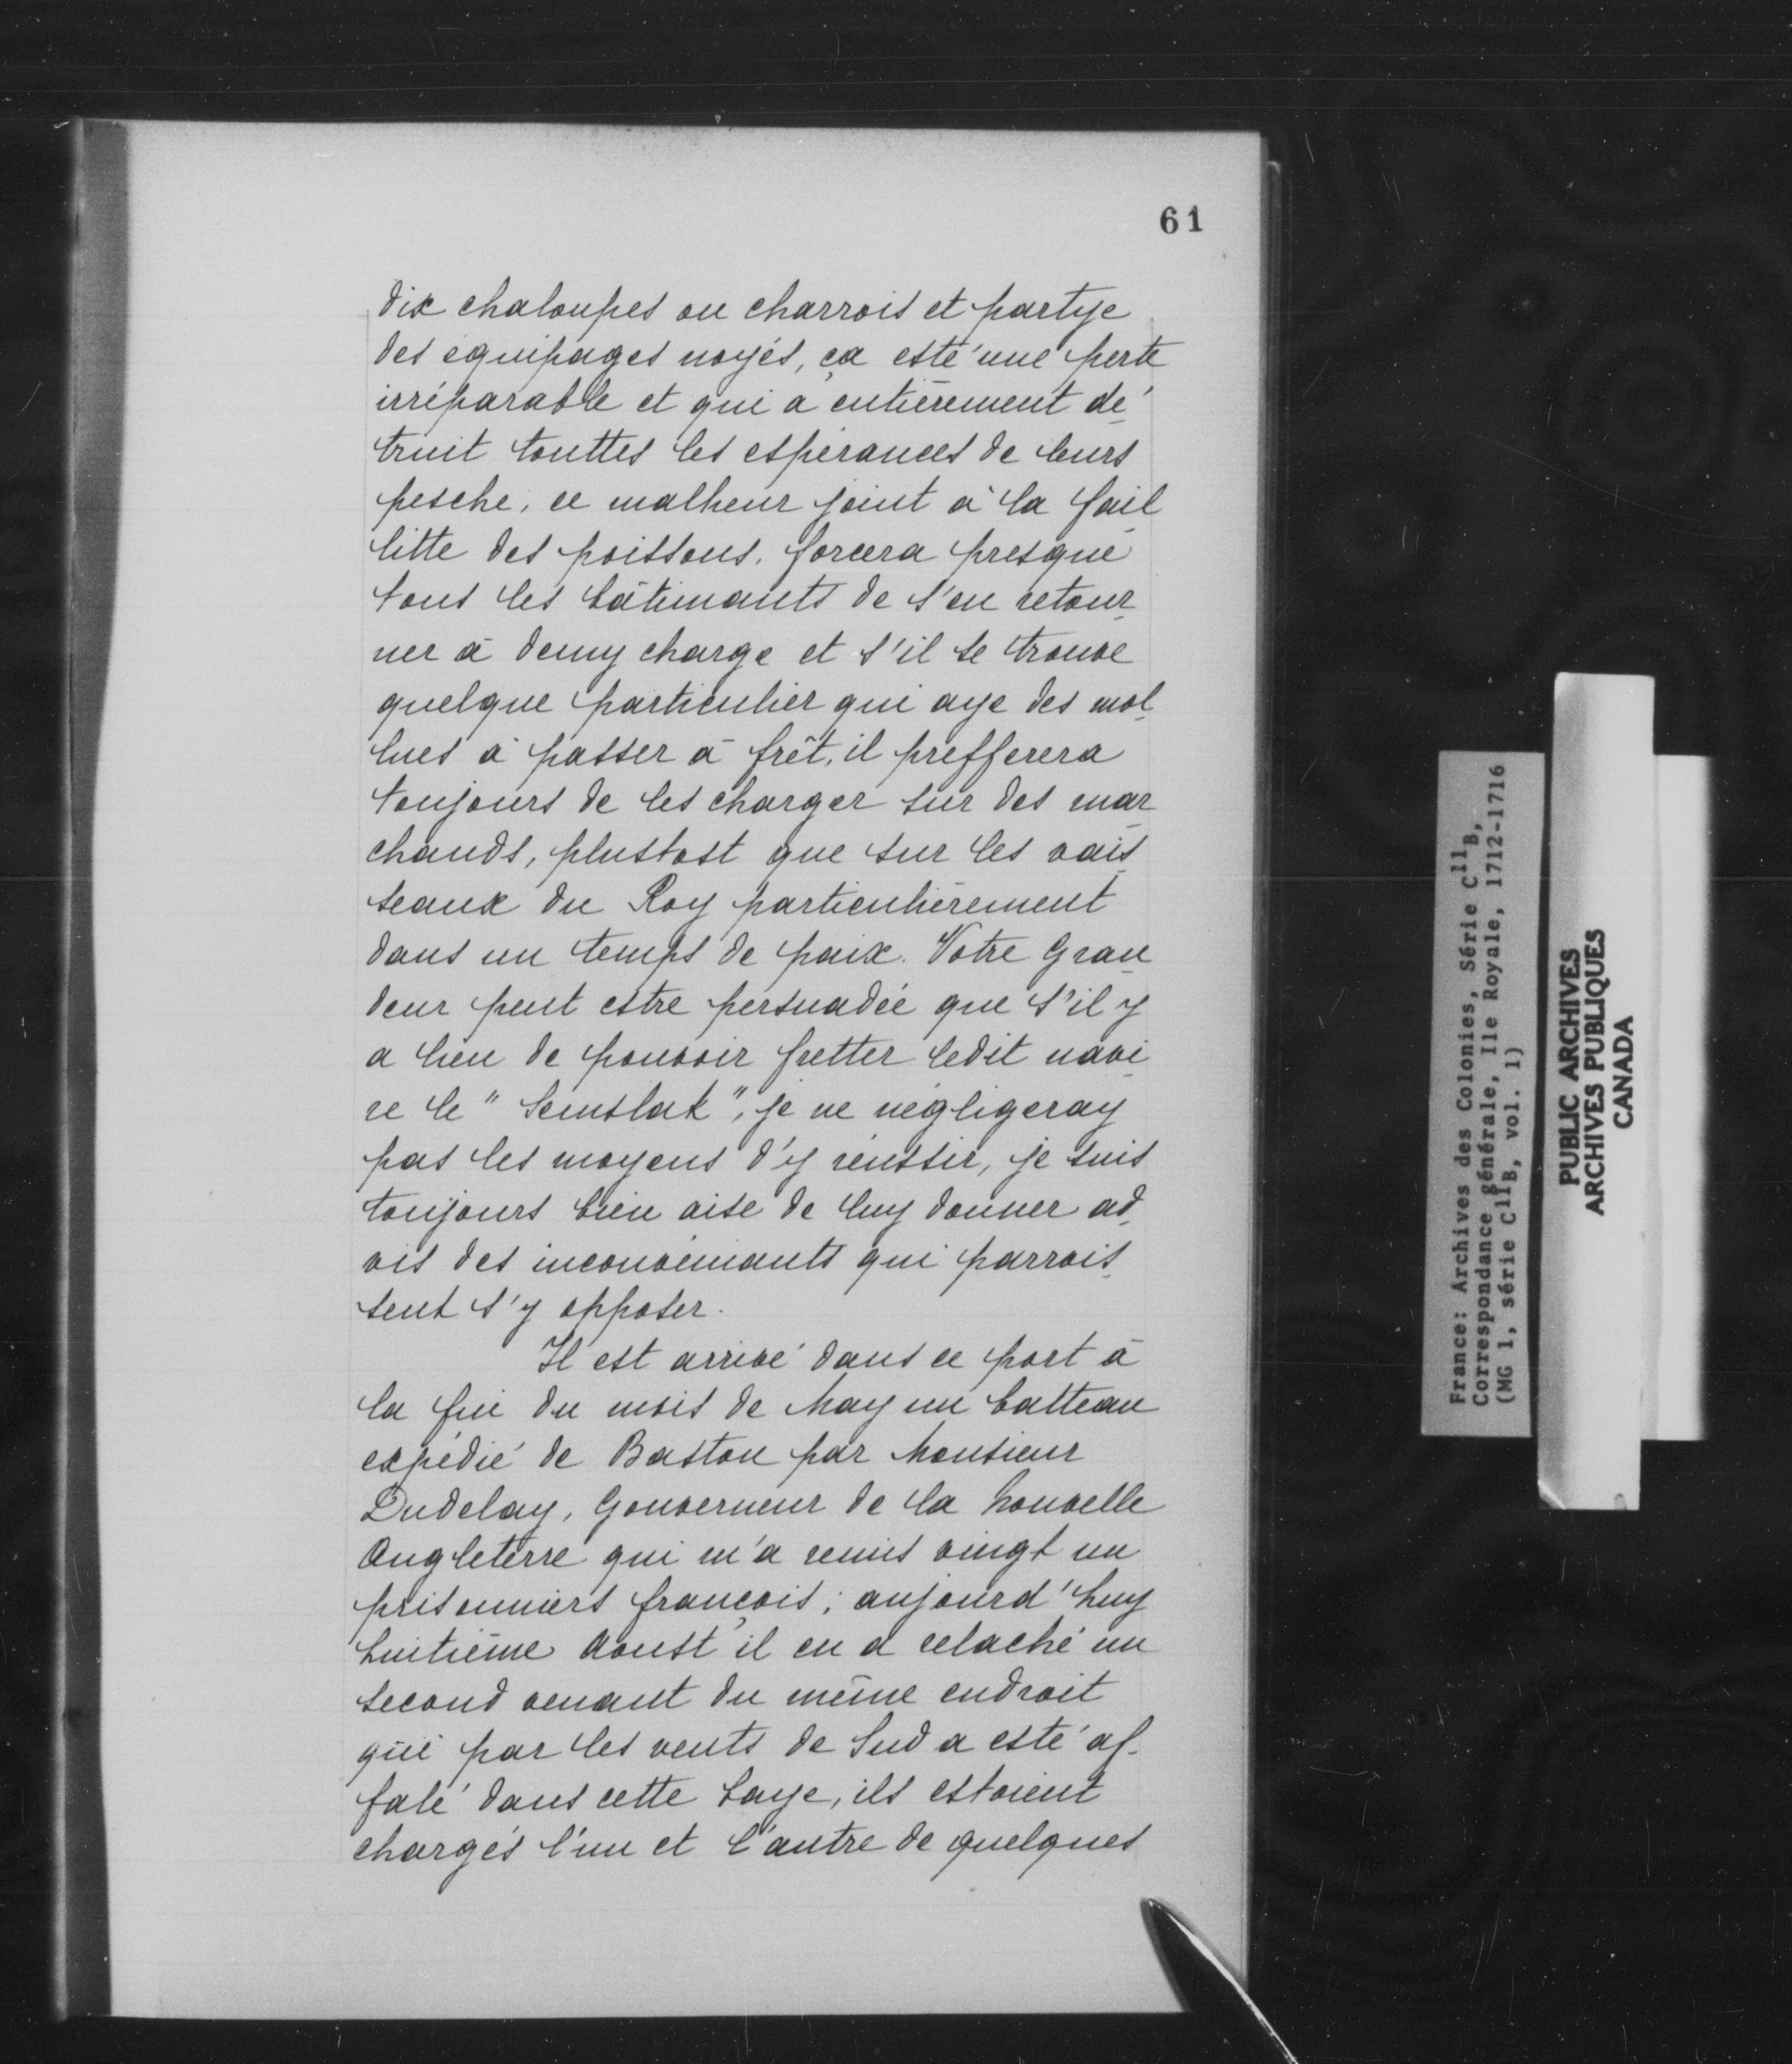 61
dix chaloupes ou charrois et partye
des équipages noyés, ça esté une perte
irréparable et qui a entièrement dé-
truit touttes les espérances de leurs
pesche, ce malheur joint à la fail-
litte des poissons, forcera presque
tous les bâtimants de s'en retour-
ner à demy charge et s'il se trouve
quelque particulier qui aye des mol-
lues à passer à frêt, il prefferera
toujours de les charger sur des mar-
chands, plustost que sur les vais-
seaux du Roy particulièrement
dans un temps de paix. Votre Gran-
deur peut estre persuadée que s'il y
a lieu de pouvoir fretter ledit navi-
re le "Semslak", je ne négligeray
pas les moyens d'y réussir, je suis
toujours bien aise de luy donner ad-
vis des inconvéniants qui parrois-
sent s'y opposer.
Il est arrivé dans ce port à
la fin du mois de May un batteau
expédié de Baston par Monsieur
Dudelay, Gouverneur de la Nouvelle
Angleterre qui m'a remis vingt un
prisonniers françois; aujourd'huy
huitième Aoust il en a relaché un
second venant du même endroit
qui par les vents de Sud a esté af-
falé dans cette baye, ils estoient
chargés l'un et l'autre de quelques
France: Archives des Colonies, Série C11B,
Correspondance générale, Ile Royale, 1712-1716
(MG 1, série C11B, vol. 1)
PUBLIC ARCHIVES
ARCHIVES PUBLIQUES
CANADA